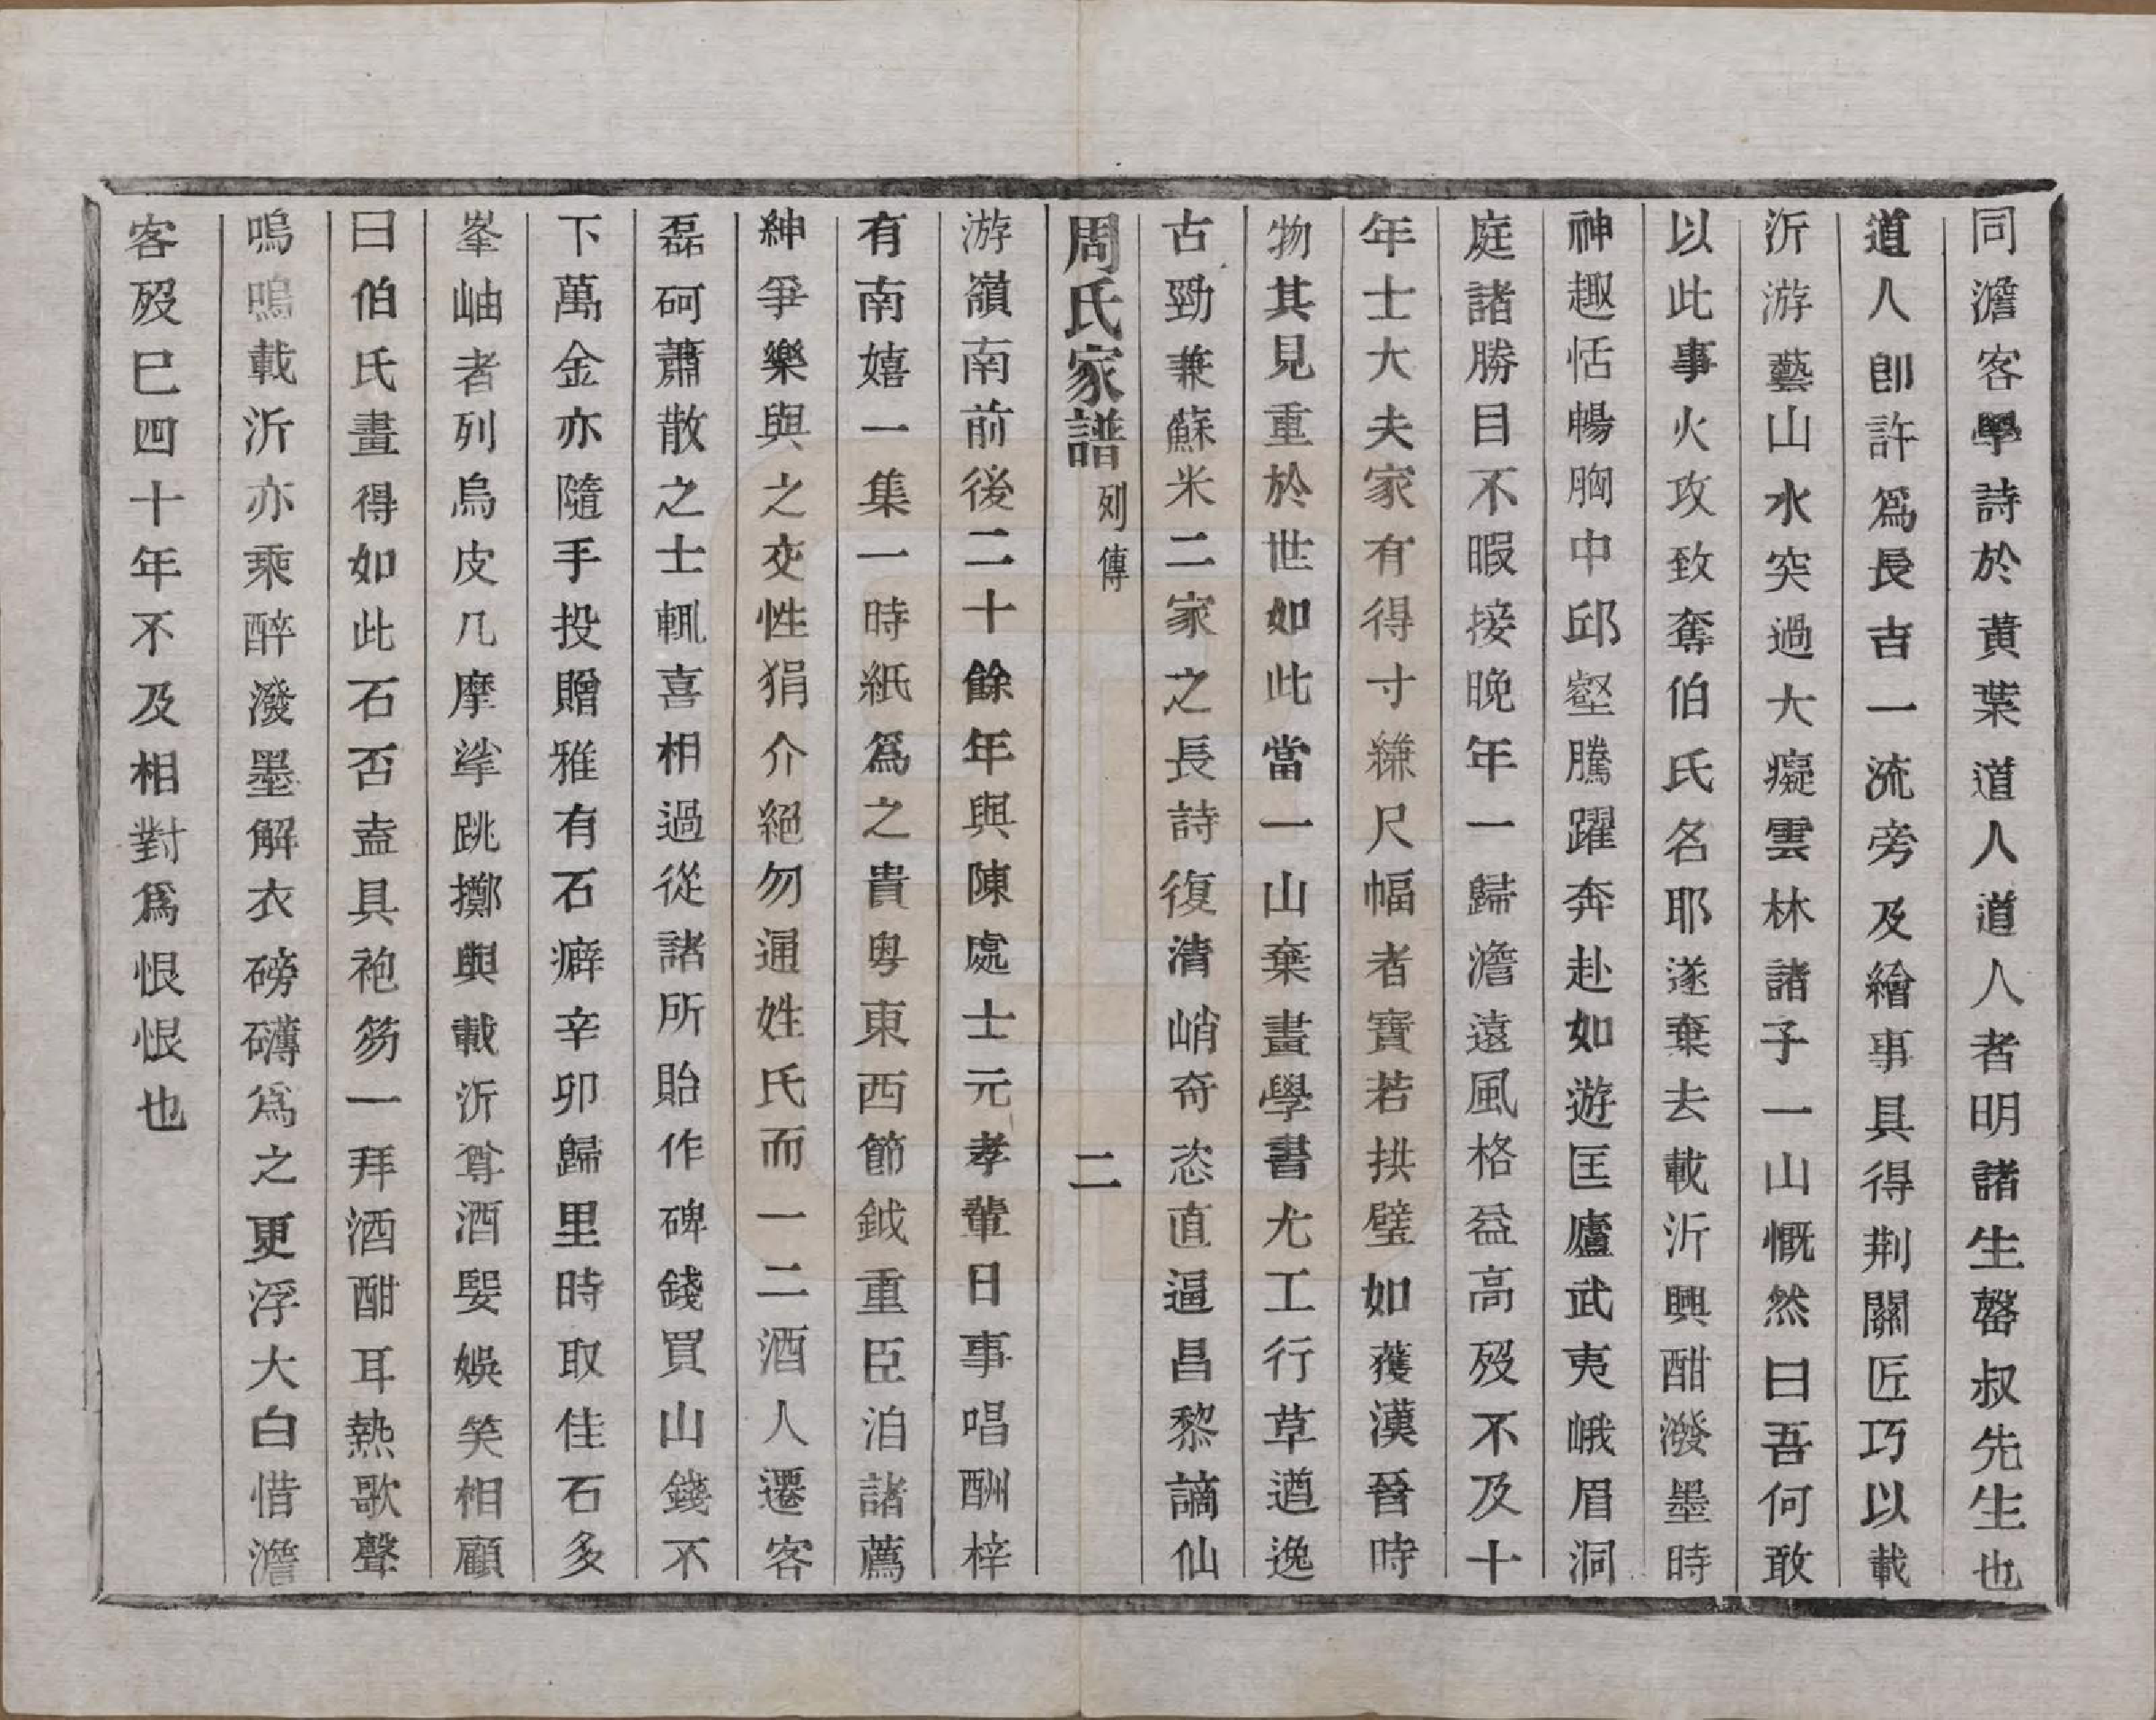 同澹客學詩於黄葉道人道人者明諸生罄叔先生也
道人卽許爲長吉一流旁及繪事具得荆關匠巧以載
沂游藝山水突過大癡雲林諸子一山慨然曰吾何敢
以此事火攻致奪伯氏名耶遂棄去載沂興酣潑墨時
神趣恬暢胸中邱壑騰躍奔赴如遊匡廬武夷峨眉洞
庭諸勝目不暇接晚年一歸澹遠風格益高歿不及十
年士大夫家有得寸縑尺幅者寶若拱璧如獲漢晉時
物其見重於世如此當一山棄畫學書尤工行草遒逸
古勁兼蘇米二家之長詩復清峭奇恣直逼昌黎謫仙
周氏家譜 列傳 二
游嶺南前後二十餘年與陳處士元孝輩日事唱酬梓
有南嬉一集一時紙爲之貴粤東西節鉞重臣洎諸薦
紳爭樂與之交性狷介絕勿通姓氏而一二酒人遷客
磊砢蕭散之士輒喜相過從諸所貽作碑錢買山錢不
下萬金亦隨手投贈雅有石癖辛卯歸里時取佳石多
峯岫者列烏皮几摩挲跳擲與載沂尊酒娶娛笑相顧
曰伯氏畫得如此石否盍具袍笏一拜酒酣耳熱歌聲
嗚嗚載沂亦乘醉潑墨解衣磅礴爲之更浮大白惜澹
客歿巳四十年不及相對爲恨恨也